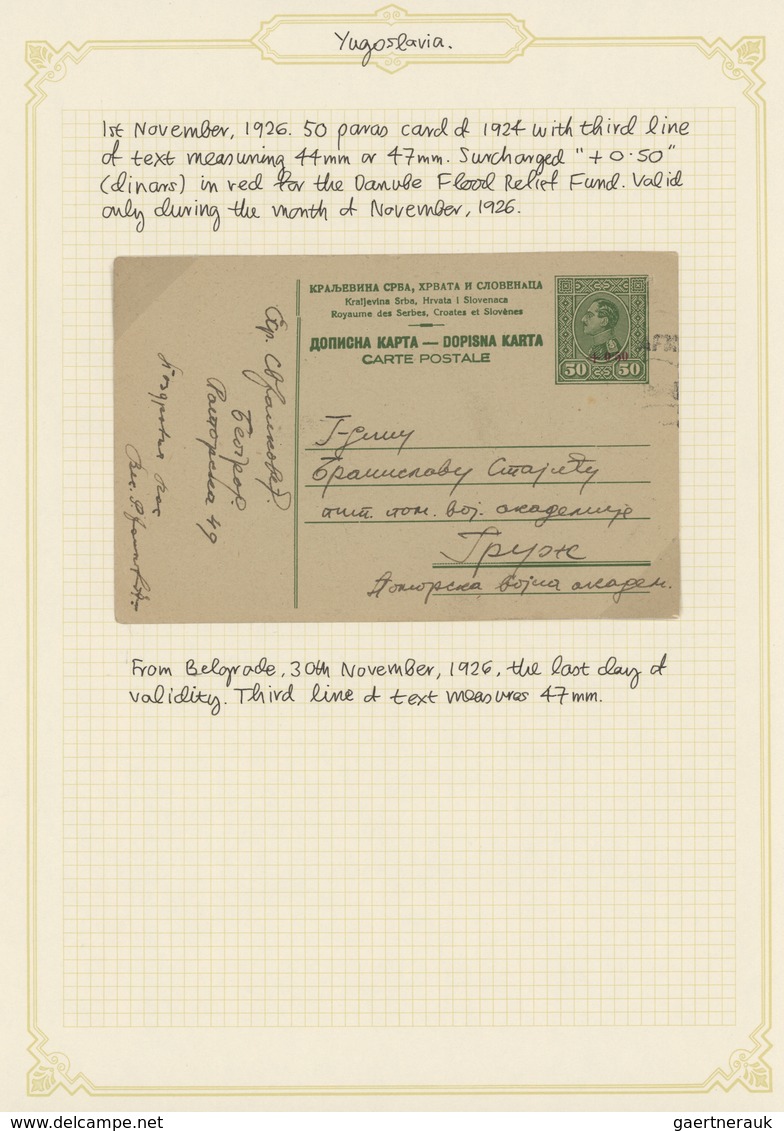 Yugoslavia.
1st November, 1926. 50 paras card of 1924 with third line
of text measuring 44mm or 47mm. Surcharged "+0·50"
(dinars) in red for the Danube Flood Relief Fund. Valid
only during the month of November, 1926.
КРАЉЕВИНА СРБА, ХРВАТА И СЛОВЕНАЦА
Kraljevina Srba, Hrvata i Slovenaca
Royaume des Serbes, Croates et Slovènes
ДОПИСНА КАРТА — DOPISNA KARTA
CARTE POSTALE
+ 0·50
50 50
Београд
49
Г-дину
Браниславу
пит. пом. вој. академије
Груж
Поморска војна академ.
From Belgrade, 30th November, 1926, the last day of
validity. Third line of text measures 47mm.
delcampe.net
gaertnerauk